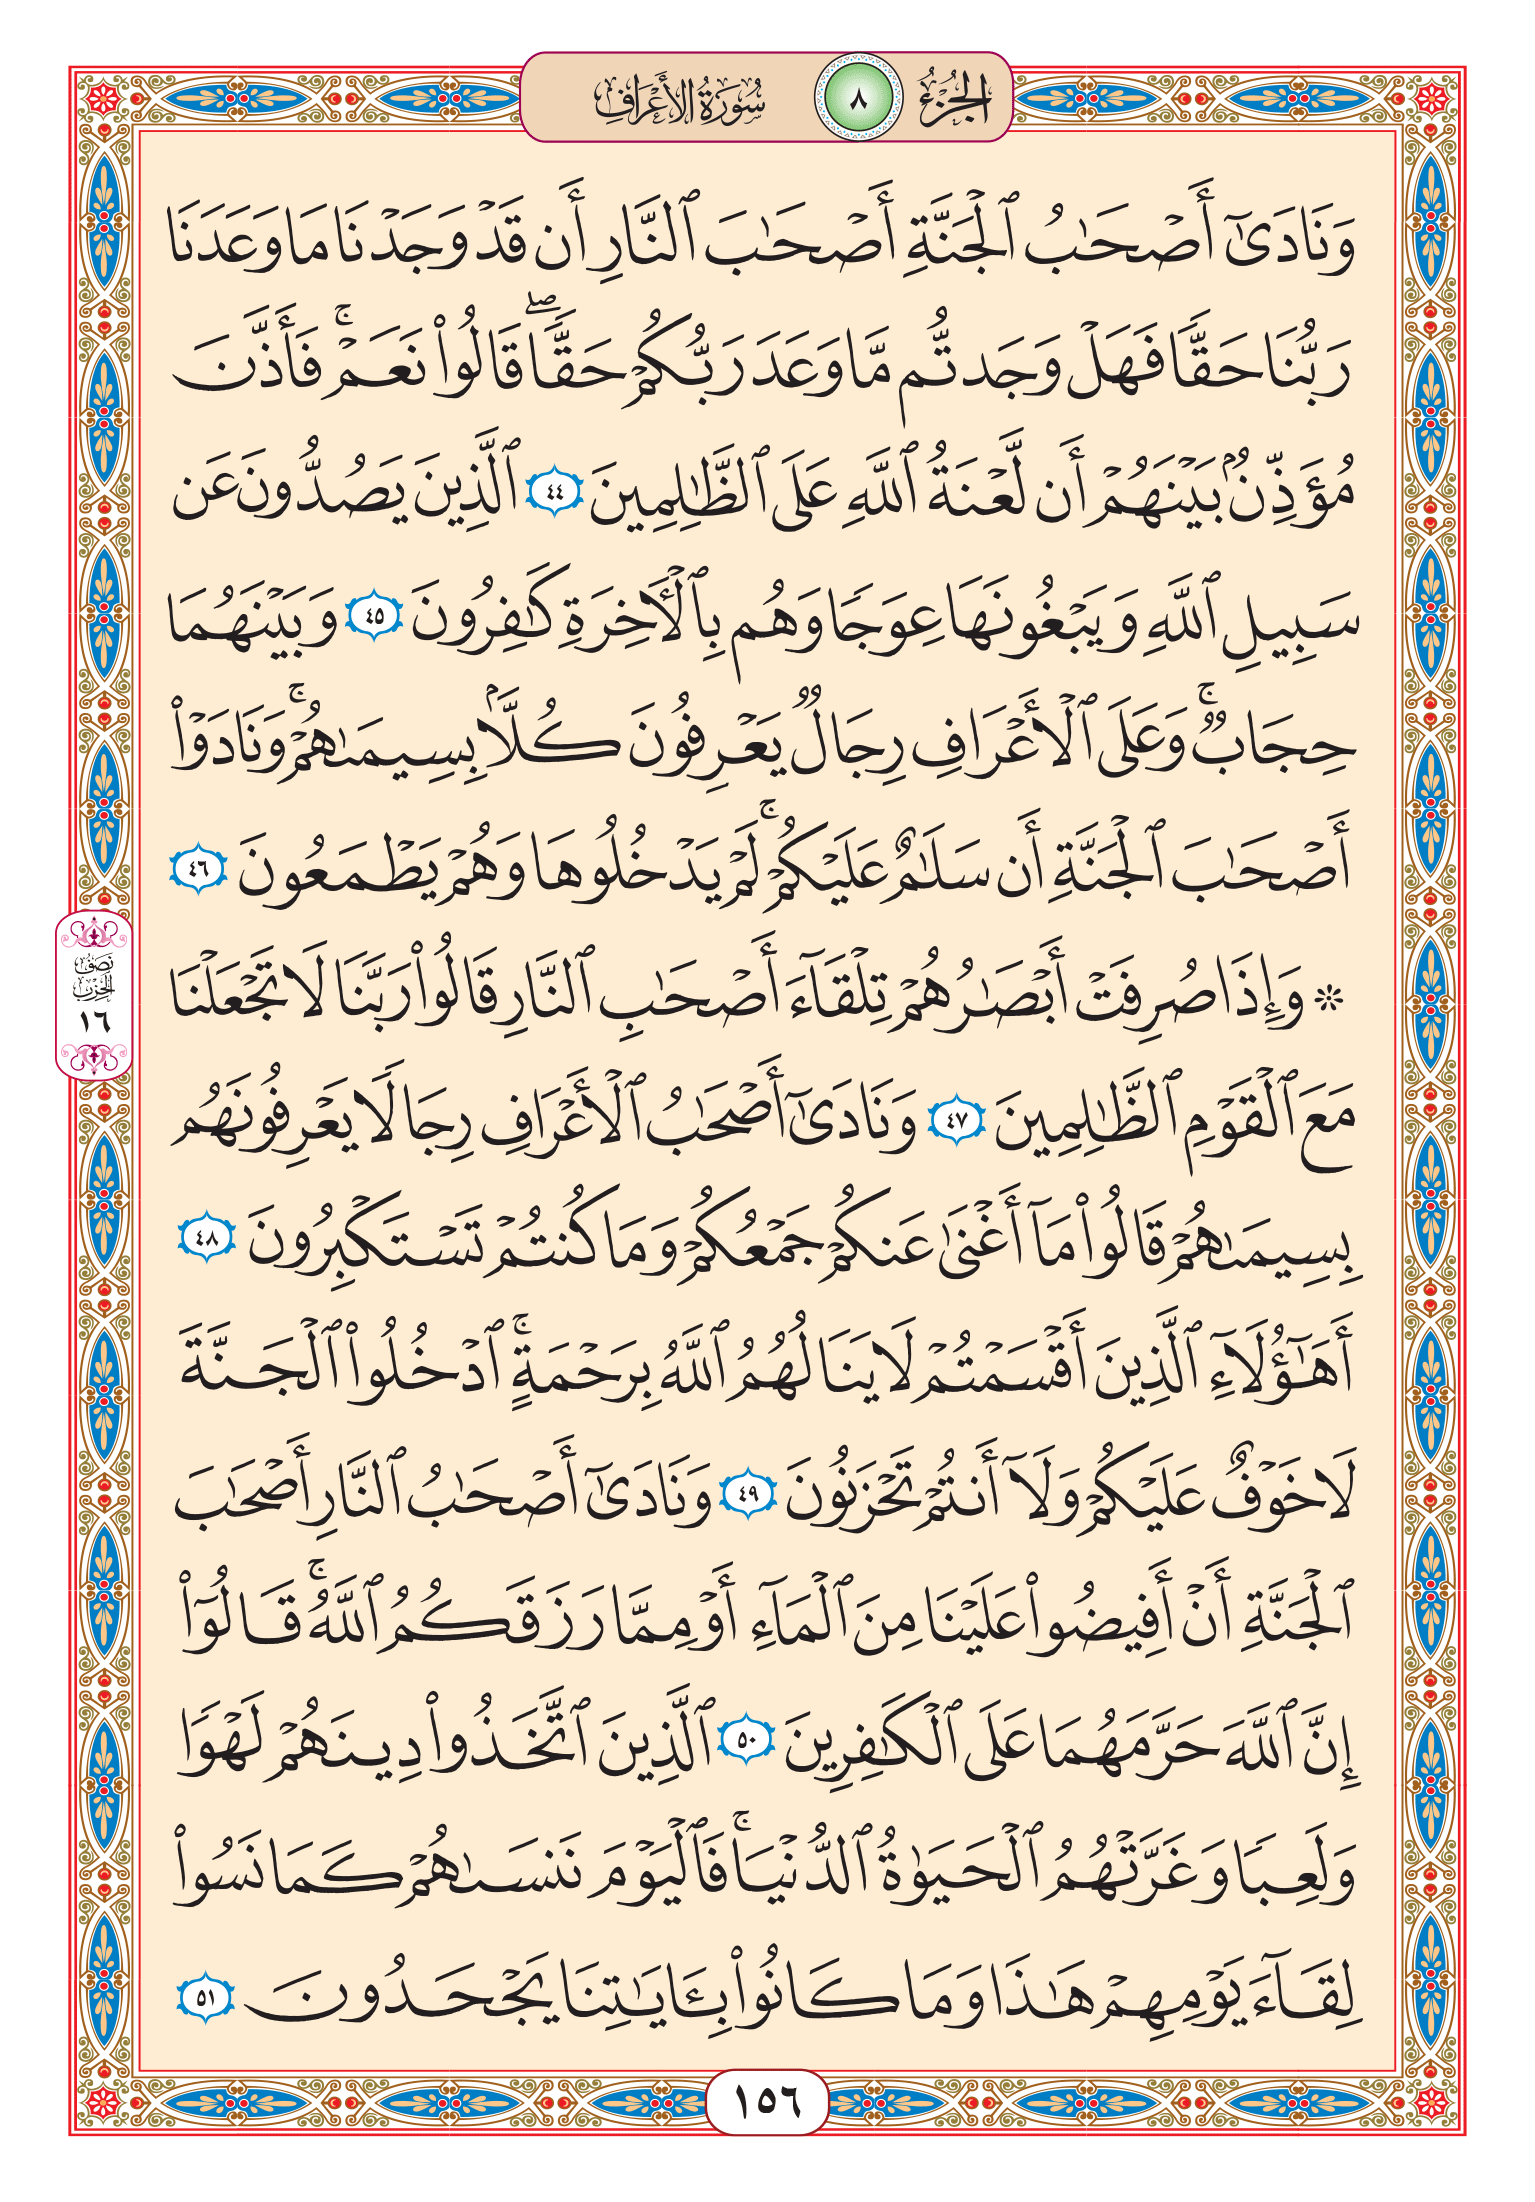 الجزء ٨ سورة الأعراف
وَنَادَىٰٓ أَصْحَٰبُ ٱلْجَنَّةِ أَصْحَٰبَ ٱلنَّارِ أَن قَدْ وَجَدْنَا مَا وَعَدَنَا
رَبُّنَا حَقًّا فَهَلْ وَجَدتُّم مَّا وَعَدَ رَبُّكُمْ حَقًّا ۖ قَالُوا۟ نَعَمْ ۚ فَأَذَّنَ
مُؤَذِّنٌۢ بَيْنَهُمْ أَن لَّعْنَةُ ٱللَّهِ عَلَى ٱلظَّٰلِمِينَ ٤٤ ٱلَّذِينَ يَصُدُّونَ عَن
سَبِيلِ ٱللَّهِ وَيَبْغُونَهَا عِوَجًا وَهُم بِٱلْءَاخِرَةِ كَٰفِرُونَ ٤٥ وَبَيْنَهُمَا
حِجَابٌ ۚ وَعَلَى ٱلْأَعْرَافِ رِجَالٌ يَعْرِفُونَ كُلًّۢا بِسِيمَىٰهُمْ ۚ وَنَادَوْا۟
أَصْحَٰبَ ٱلْجَنَّةِ أَن سَلَٰمٌ عَلَيْكُمْ ۚ لَمْ يَدْخُلُوهَا وَهُمْ يَطْمَعُونَ ٤٦
۞ وَإِذَا صُرِفَتْ أَبْصَٰرُهُمْ تِلْقَآءَ أَصْحَٰبِ ٱلنَّارِ قَالُوا۟ رَبَّنَا لَا تَجْعَلْنَا
نصف الحزب ١٦
مَعَ ٱلْقَوْمِ ٱلظَّٰلِمِينَ ٤٧ وَنَادَىٰٓ أَصْحَٰبُ ٱلْأَعْرَافِ رِجَالًا يَعْرِفُونَهُم
بِسِيمَىٰهُمْ قَالُوا۟ مَآ أَغْنَىٰ عَنكُمْ جَمْعُكُمْ وَمَا كُنتُمْ تَسْتَكْبِرُونَ ٤٨
أَهَٰٓؤُلَآءِ ٱلَّذِينَ أَقْسَمْتُمْ لَا يَنَالُهُمُ ٱللَّهُ بِرَحْمَةٍ ۚ ٱدْخُلُوا۟ ٱلْجَنَّةَ
لَا خَوْفٌ عَلَيْكُمْ وَلَآ أَنتُمْ تَحْزَنُونَ ٤٩ وَنَادَىٰٓ أَصْحَٰبُ ٱلنَّارِ أَصْحَٰبَ
ٱلْجَنَّةِ أَنْ أَفِيضُوا۟ عَلَيْنَا مِنَ ٱلْمَآءِ أَوْ مِمَّا رَزَقَكُمُ ٱللَّهُ ۚ قَالُوٓا۟
إِنَّ ٱللَّهَ حَرَّمَهُمَا عَلَى ٱلْكَٰفِرِينَ ٥٠ ٱلَّذِينَ ٱتَّخَذُوا۟ دِينَهُمْ لَهْوًا
وَلَعِبًا وَغَرَّتْهُمُ ٱلْحَيَوٰةُ ٱلدُّنْيَا ۚ فَٱلْيَوْمَ نَنسَىٰهُمْ كَمَا نَسُوا۟
لِقَآءَ يَوْمِهِمْ هَٰذَا وَمَا كَانُوا۟ بِـَٔايَٰتِنَا يَجْحَدُونَ ٥١
١٥٦